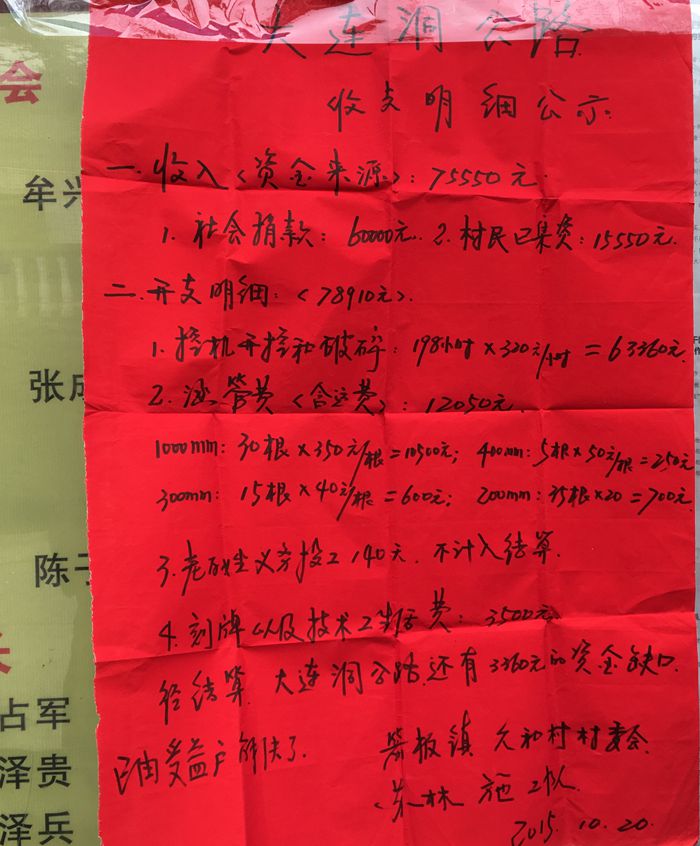 大连洞公路
收支明细公示
会
一.收入<资金来源>: 75550元.
牟兴
1. 社会捐款: 60000元. 2. 村民已集资: 15550元.
二.开支明细: <78910元>.
1. 挖机开挖和破碎: 198小时×320元/小时=63360元.
张成
2. 涵管费<含运费>: 12050元.
1000mm: 30根×350元/根=10500元; 400mm: 5根×50元/根=250元
300mm: 15根×40元/根=600元; 200mm: 35根×20=700元
陈子
3. 老百姓义务投工140天. 不计入结算.
4. 刻牌以及技术工生活费: 3500元.
经结算. 大连洞公路还有3360元的资金缺口.
占军
已由受益户解决了.
箐板镇 允和村村委会
泽贵
林 施工队
泽兵
2015. 10. 20.